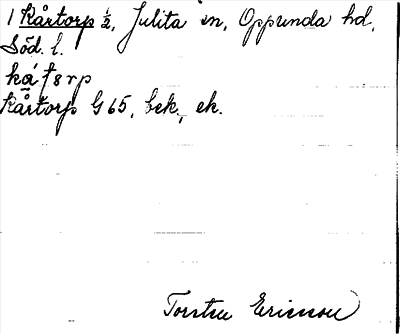 1 Kårtorp ½, Julita sn, Oppunda hd,
Söd. l.
Kårtorp G 65, bek., ek.
Torsten Ericsson